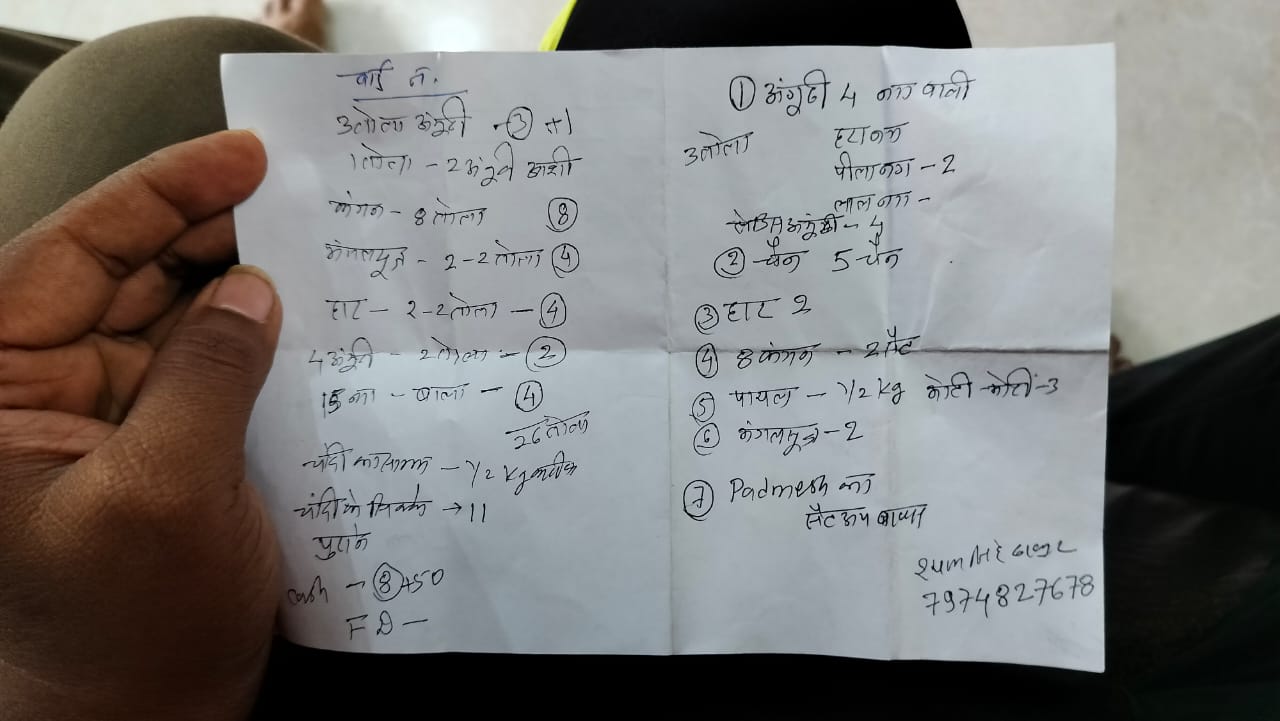 वार्ड नं.
3तोला अंगूठी - ③ +1
1तोला - 2 अंगूठी
कंगन - 8 तोला ⑧
मंगलसूत्र - 2-2 तोला ④
हार - 2-2 तोला - ④
4 अंगूठी - 2 तोला - ②
15 का - बाला - ④
26 तोला
चांदी का सामान - 1/2 kg करीब
चांदी के सिक्के → 11
पुराने
Cash → ⑧ 450
FD -
① अंगूठी 4 नग वाली
3तोला हरा नग
पीला नग - 2
लाल नग -
लेडिस अंगूठी - 4
② चैन 5 चैन
③ हार 2
④ 8 कंगन - 2 सैट
⑤ पायल - 1/2 kg मोटी-मोटी - 3
⑥ मंगलसूत्र - 2
⑦ Padmesh का
सैट
7974827678